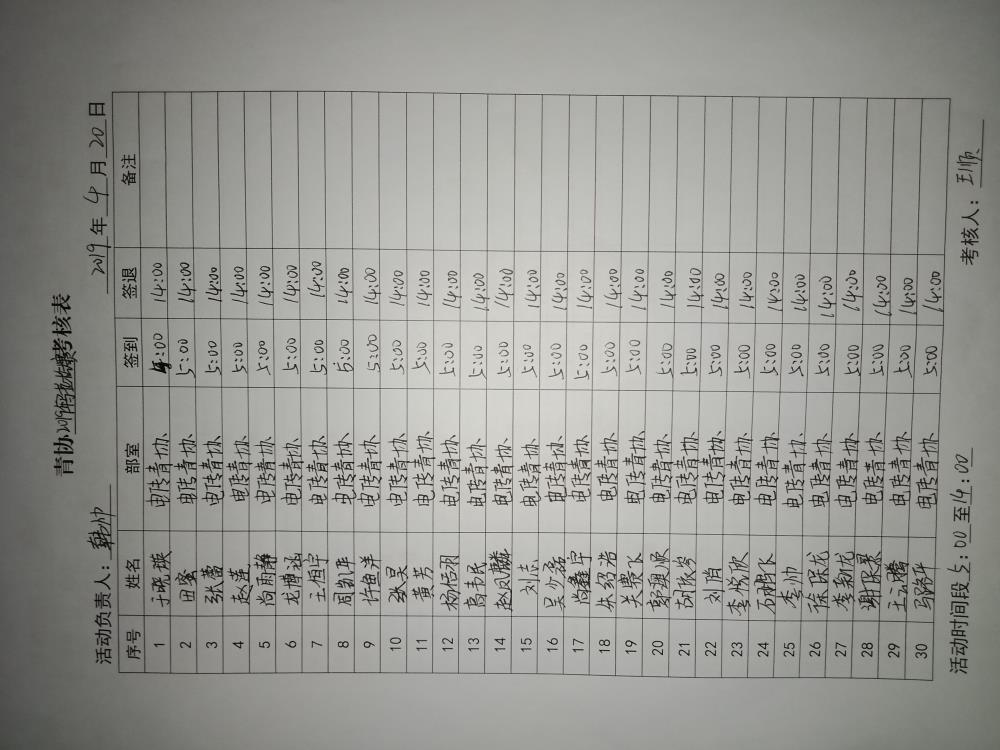 青协2019考核表
活动负责人：韩帅 2019年4月20日
序号 姓名 部室 签到 签退 备注
1 于晓瑛 电传青协 5:00 14:00
2 田蜜 电传青协 5:00 14:00
3 张蕾 电传青协 5:00 14:00
4 赵莲 电传青协 5:00 14:00
5 尚雨静 电传青协 5:00 14:00
6 龙博涵 电传青协 5:00 14:00
7 王恒宇 电传青协 5:00 14:00
8 周凯平 电传青协 5:00 14:00
9 许鱼洋 电传青协 5:00 14:00
10 张昊 电传青协 5:00 14:00
11 黄芳 电传青协 5:00 14:00
12 杨恬羽 电传青协 5:00 14:00
13 高韦民 电传青协 5:00 14:00
14 赵凤麟 电传青协 5:00 14:00
15 刘志 电传青协 5:00 14:00
16 电传青协 5:00 14:00
17 尚鑫宇 电传青协 5:00 14:00
18 朱绍浩 电传青协 5:00 14:00
19 关赛飞 电传青协 5:00 14:00
20 郭奥欣 电传青协 5:00 14:00
21 电传青协 5:00 14:00
22 刘俏 电传青协 5:00 14:00
23 李悦欣 电传青协 5:00 14:00
24 石鹏飞 电传青协 5:00 14:00
25 李帅 电传青协 5:00 14:00
26 徐保龙 电传青协 5:00 14:00
27 电传青协 5:00 14:00
28 谢保景 电传青协 5:00 14:00
29 王云腾 电传青协 5:00 14:00
30 电传青协 5:00 14:00
活动时间段5:00至14:00 考核人：王顺